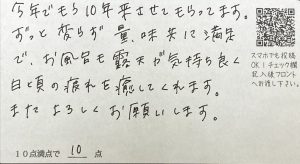 今年でもう10年来させてもらってます。
ずっと変らず量、味共に満足
で、お風呂も露天が気持ち良く
日頃の疲れを癒してくれます。
またよろしくお願いします。
10点満点で 10 点
スマホでも投稿
OK!チェック欄
記入後フロント
へお渡し下さい。